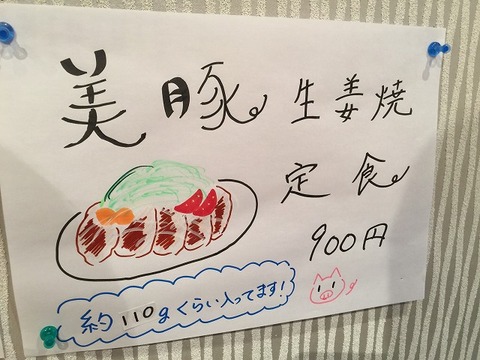 美豚 生姜焼
定食
900円
約110gくらい入ってます!